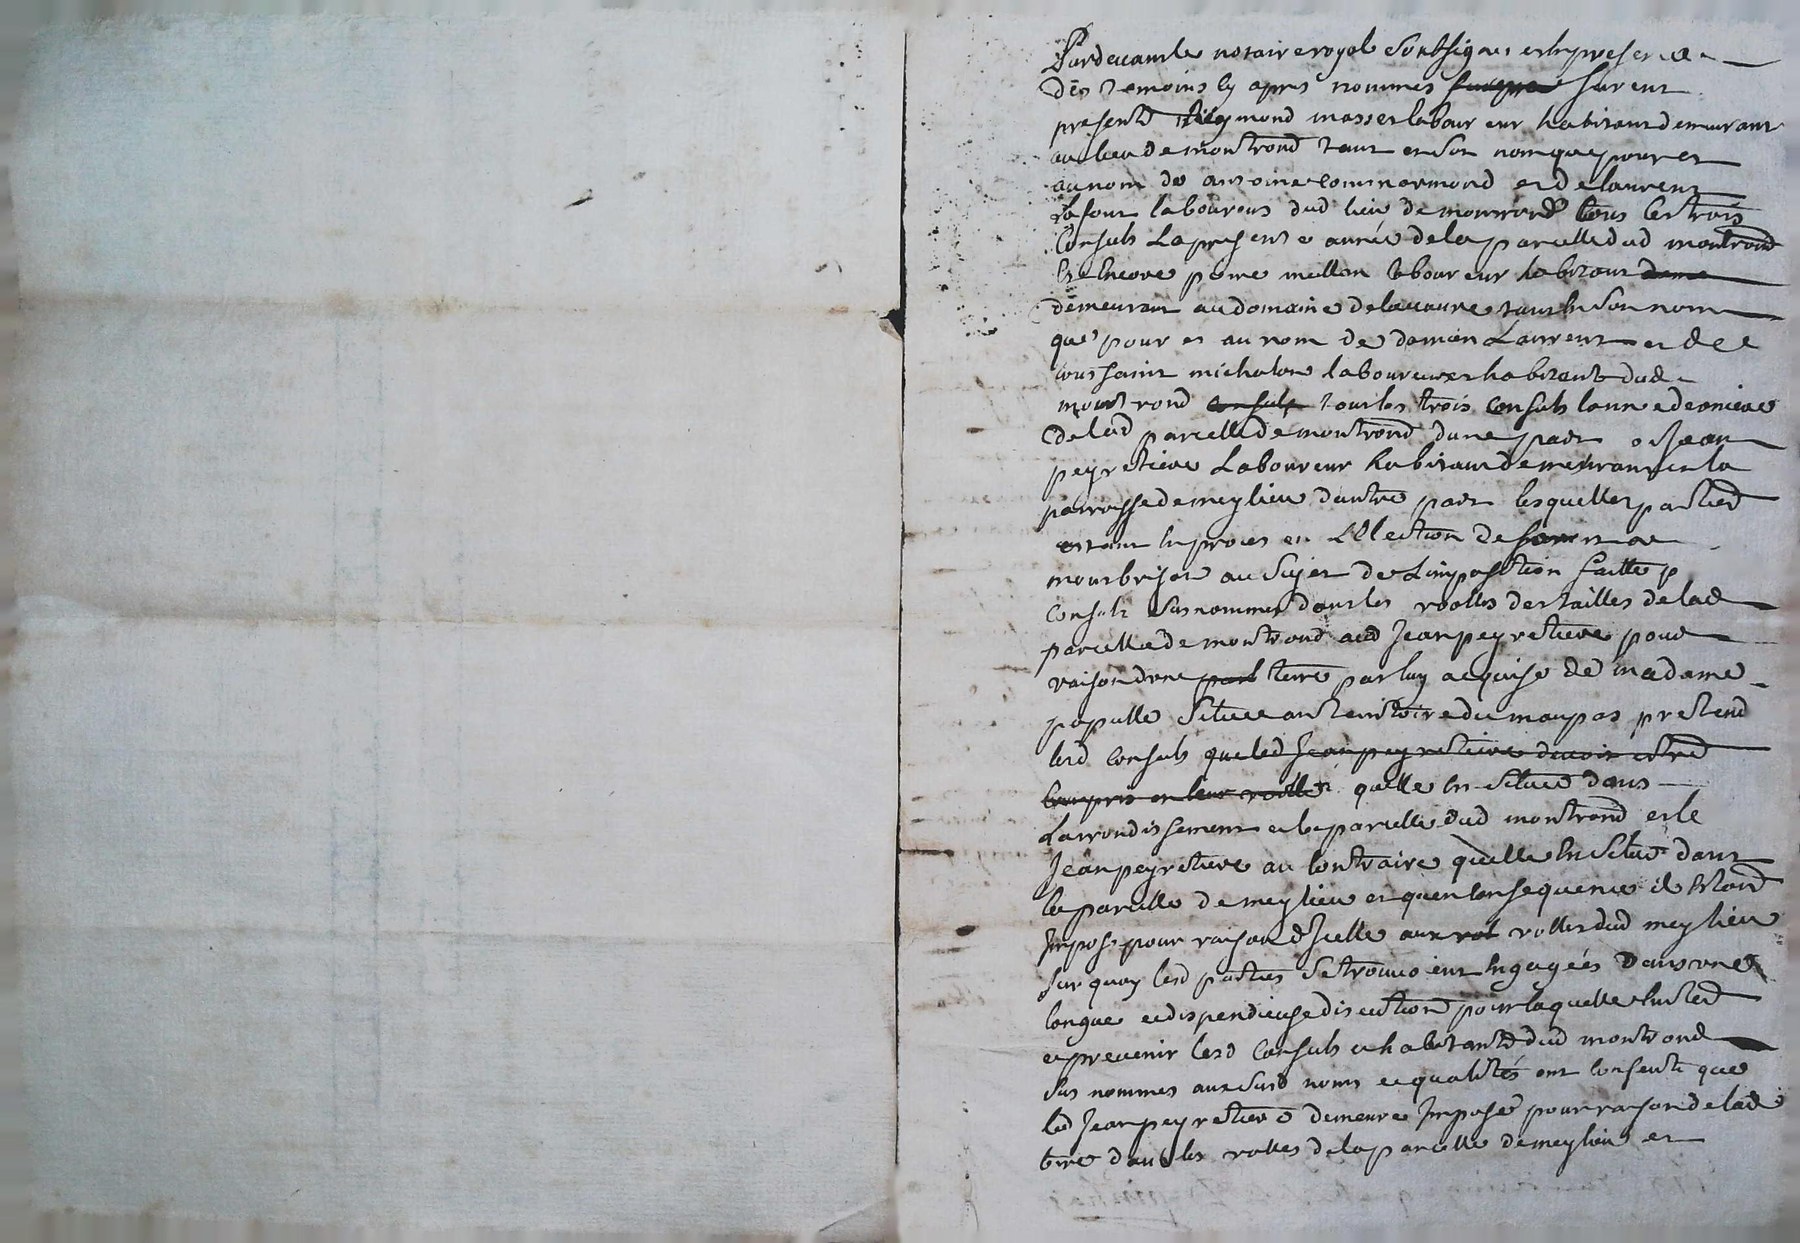 Pardevant le notaire royal soubsigné et en presence
des temoins cy apres nommes furent
presents Reymond masset laboureur habitant demeurant
au lieu de montrond tant en son nom que pour et
au nom de antoine et de laurent
lafont laboureurs dud lieu de montrond tous les trois
Consuls la presente année de la parcelle dud montrond
Et Encore laboureur habitant dem
demeurant au domaine de lavaure tant en son nom
que pour et au nom de damien Laurent et de
toussaint michalon laboureurs habitants dud
montrond consuls tous les trois consuls lannee derniere
de lad parcelle de montrond dune part & Jean
peyretiere Laboureur habitant demeurant en la
parroisse de meylieu dautre part lesquelles parties
estant en proces en LElection de
montbrison au sujet de Limposition faitte p
consuls susnommes dans les roolles des tailles de lad
parcelle de montrond aud Jean peyretiere pour
raison dune terre par luy acquise de madame
papulle située au territoire du maupas pretend
lesd consuls que led Jean peyretiere devoir estre
compris en leur roolle quelle en située dans
Larrondissement et la parcelle dud montrond et le
Jean peyretiere au contraire quelle en située dans
la parcelle de meylieu et quen consequence il estoit
Imposé pour raison dicelle aux rol rolles dud meylieu
sur quoy lesd parties se trouvoient Engagées dans une
longue et dispendieuse discution pour laquelle eviter
et prevenir lesd Consuls et habitants dud montrond
sus nommes aux susd noms et qualités ont consenti que
led Jean peyretiere demeure Imposé pour raison de lad
terre dans les rolles de la parcelle de meylieu et